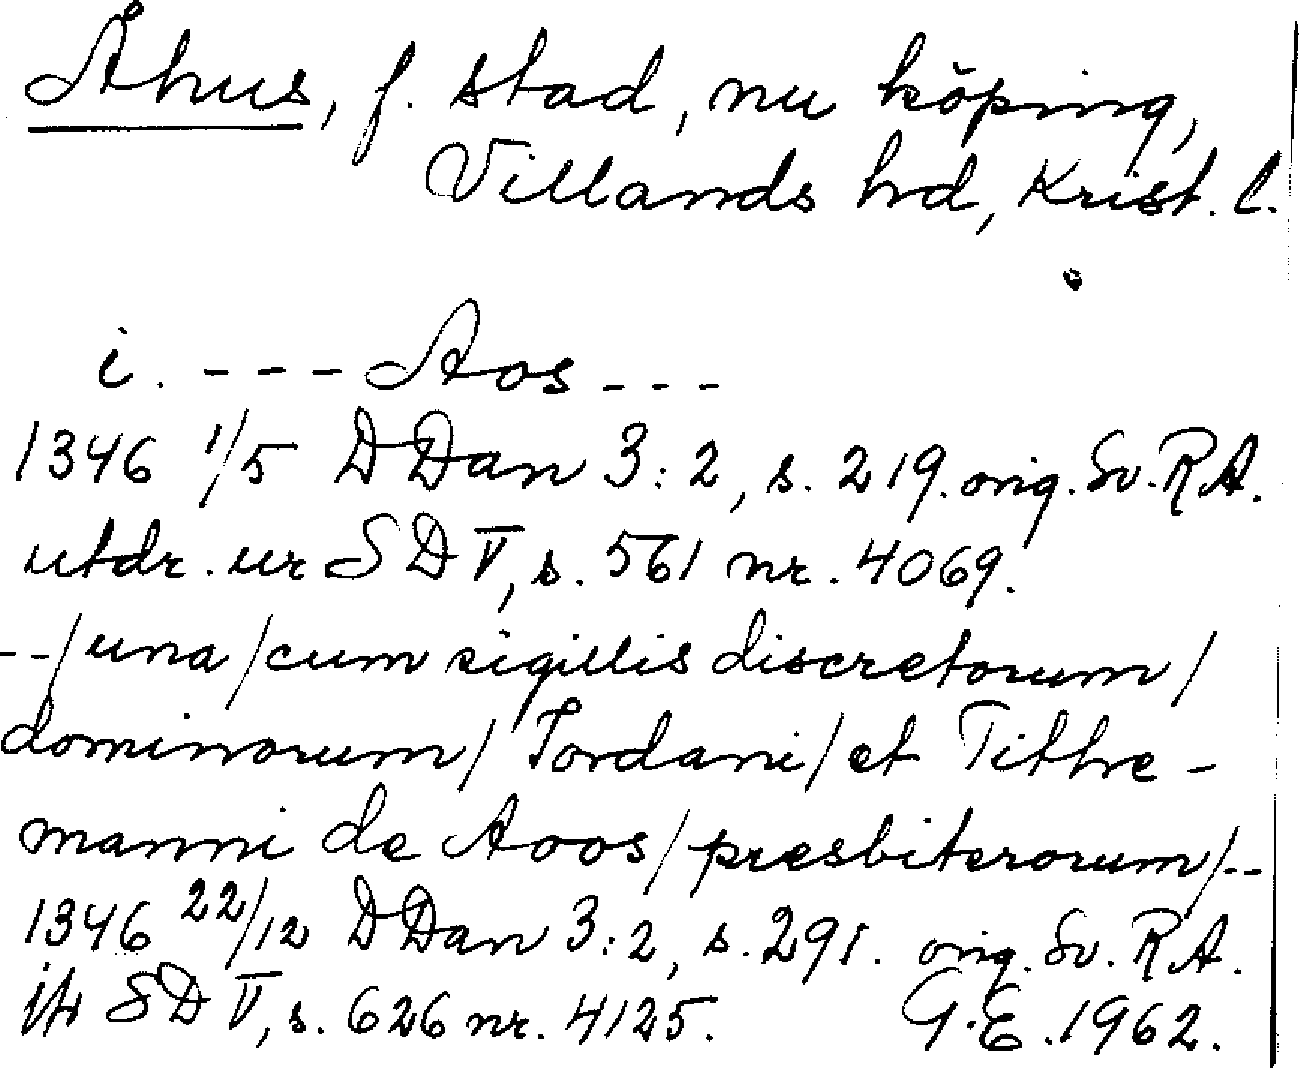 Åhus, f. stad, nu köping,
Villands hd, Krist. l.
i. --- Aos ---
1346 1/5 DDan 3:2, s. 219. orig. Sv. RA.
utdr. ur SD V, s. 561 nr. 4069.
--/una/cum sigillis discretorum/
dominorum/Iordani/et Tithre-
manni de Aoos/presbiterorum/--
1346 22/12 DDan 3:2, s. 291. orig. Sv. RA.
SD V, s. 626 nr. 4125. G.E. 1962.